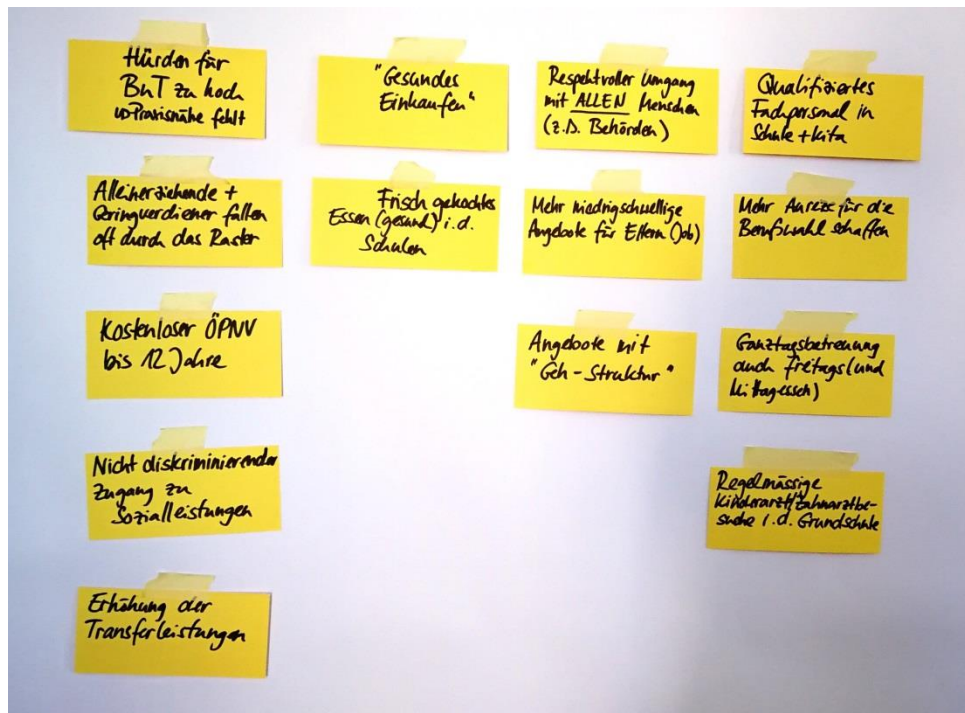 Hürden für
BuT zu hoch
➔ Praxisnähe fehlt
Alleinerziehende +
Geringverdiener fallen
oft durch das Raster
Kostenloser ÖPNV
bis 12 Jahre
Nicht diskriminierender
Zugang zu
Sozialleistungen
Erhöhung der
Transferleistungen
"Gesundes
Einkaufen"
Frisch gekochtes
Essen (gesund) i.d.
Schulen
Respektvoller Umgang
mit ALLEN Menschen
(z.B. Behörden)
Mehr niedrigschwellige
Angebote für Eltern (Job)
Angebote mit
"Geh-Struktur"
Qualifiziertes
Fachpersonal in
Schule + Kita
Mehr Anreize für die
Berufswahl schaffen
Ganztagsbetreuung
auch freitags (und
Mittagessen)
Regelmässige
Kinderarzt/Zahnarztbe-
suche i.d. Grundschule